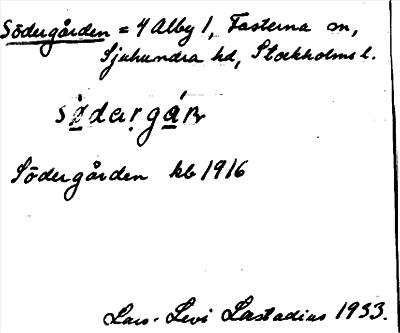 Södergården = 4 Alby 1, Fasterna sn,
Sjuhundra hd, Stockholms l.
Södergården kb 1916
Lars-Levi Læstadius 1933.